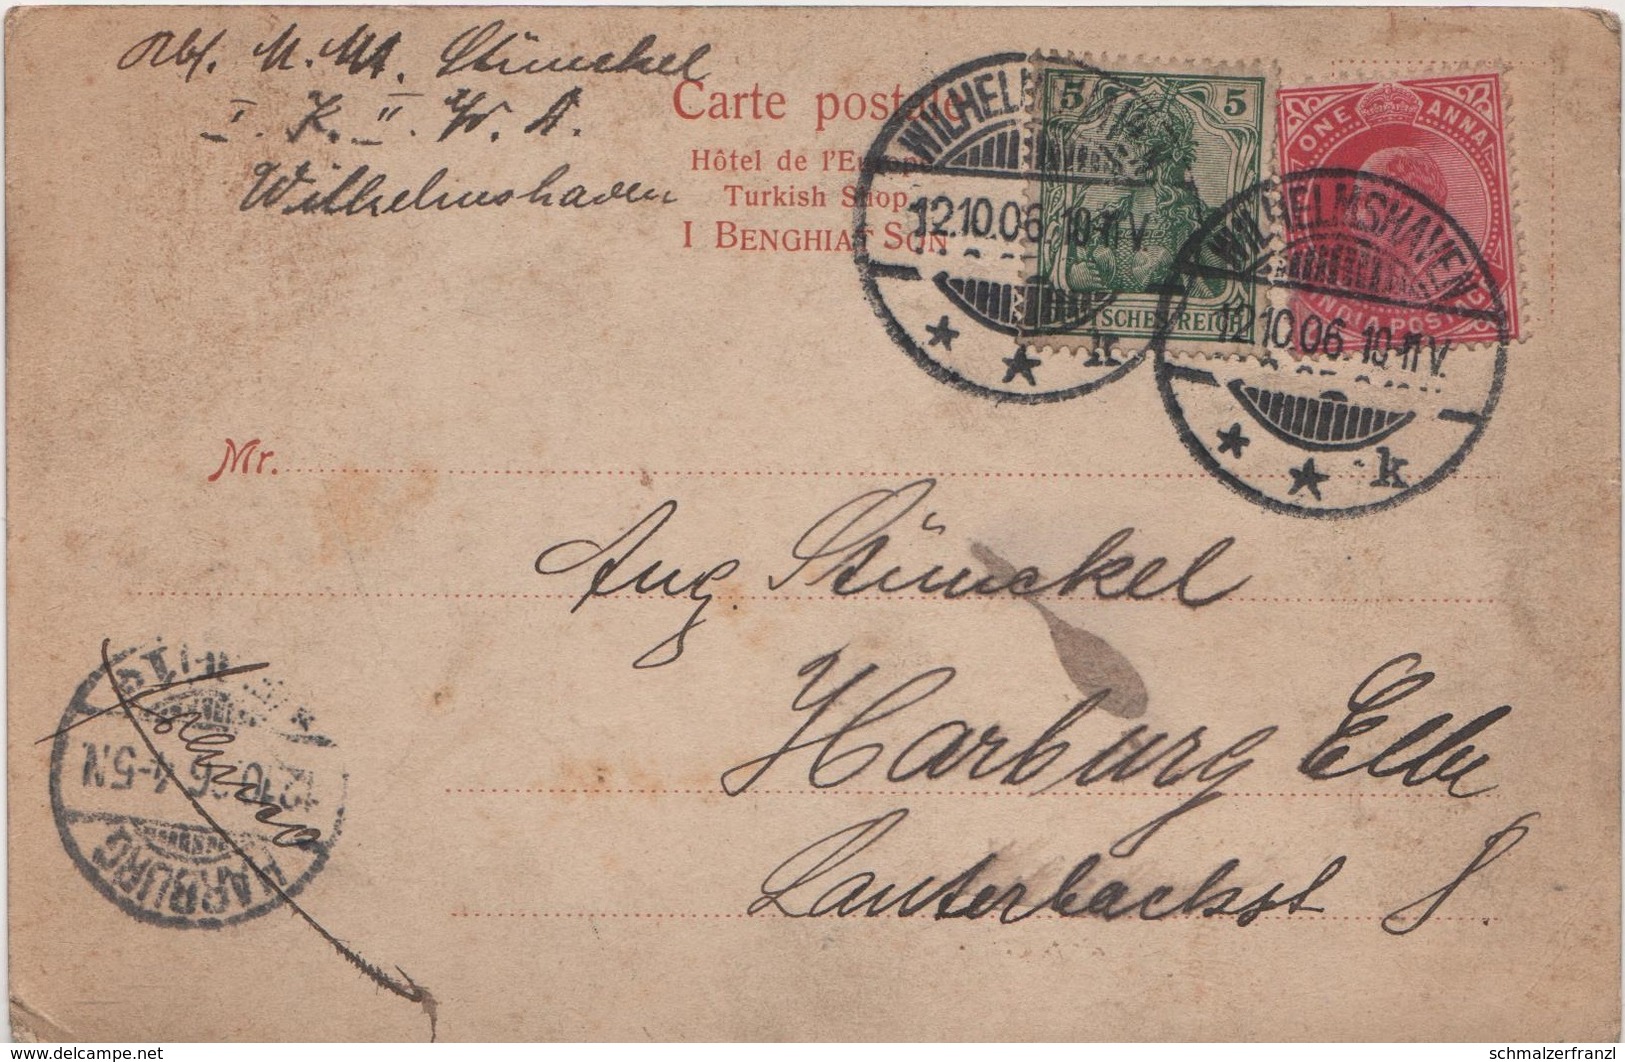 Abs. M. Mt. Stünckel
I. K. II. W. D.
Wilhelmshaven
Carte postale
Hôtel de l'Europe
Turkish Shop
I BENGHIAT SON
5 5
DEUTSCHES REICH
ONE ANNA
INDIA POSTAGE
WILHELMSHAVEN
12.10.06. 10-11 V.
* * k
WILHELMSHAVEN
12.10.06. 10-11 V.
* * k
Nr.
Aug. Stünckel
Harburg Elbe
Lauterbachst 8.
HARBURG
12.10.06 4-5.N
delcampe.net
schmalzerfranzl